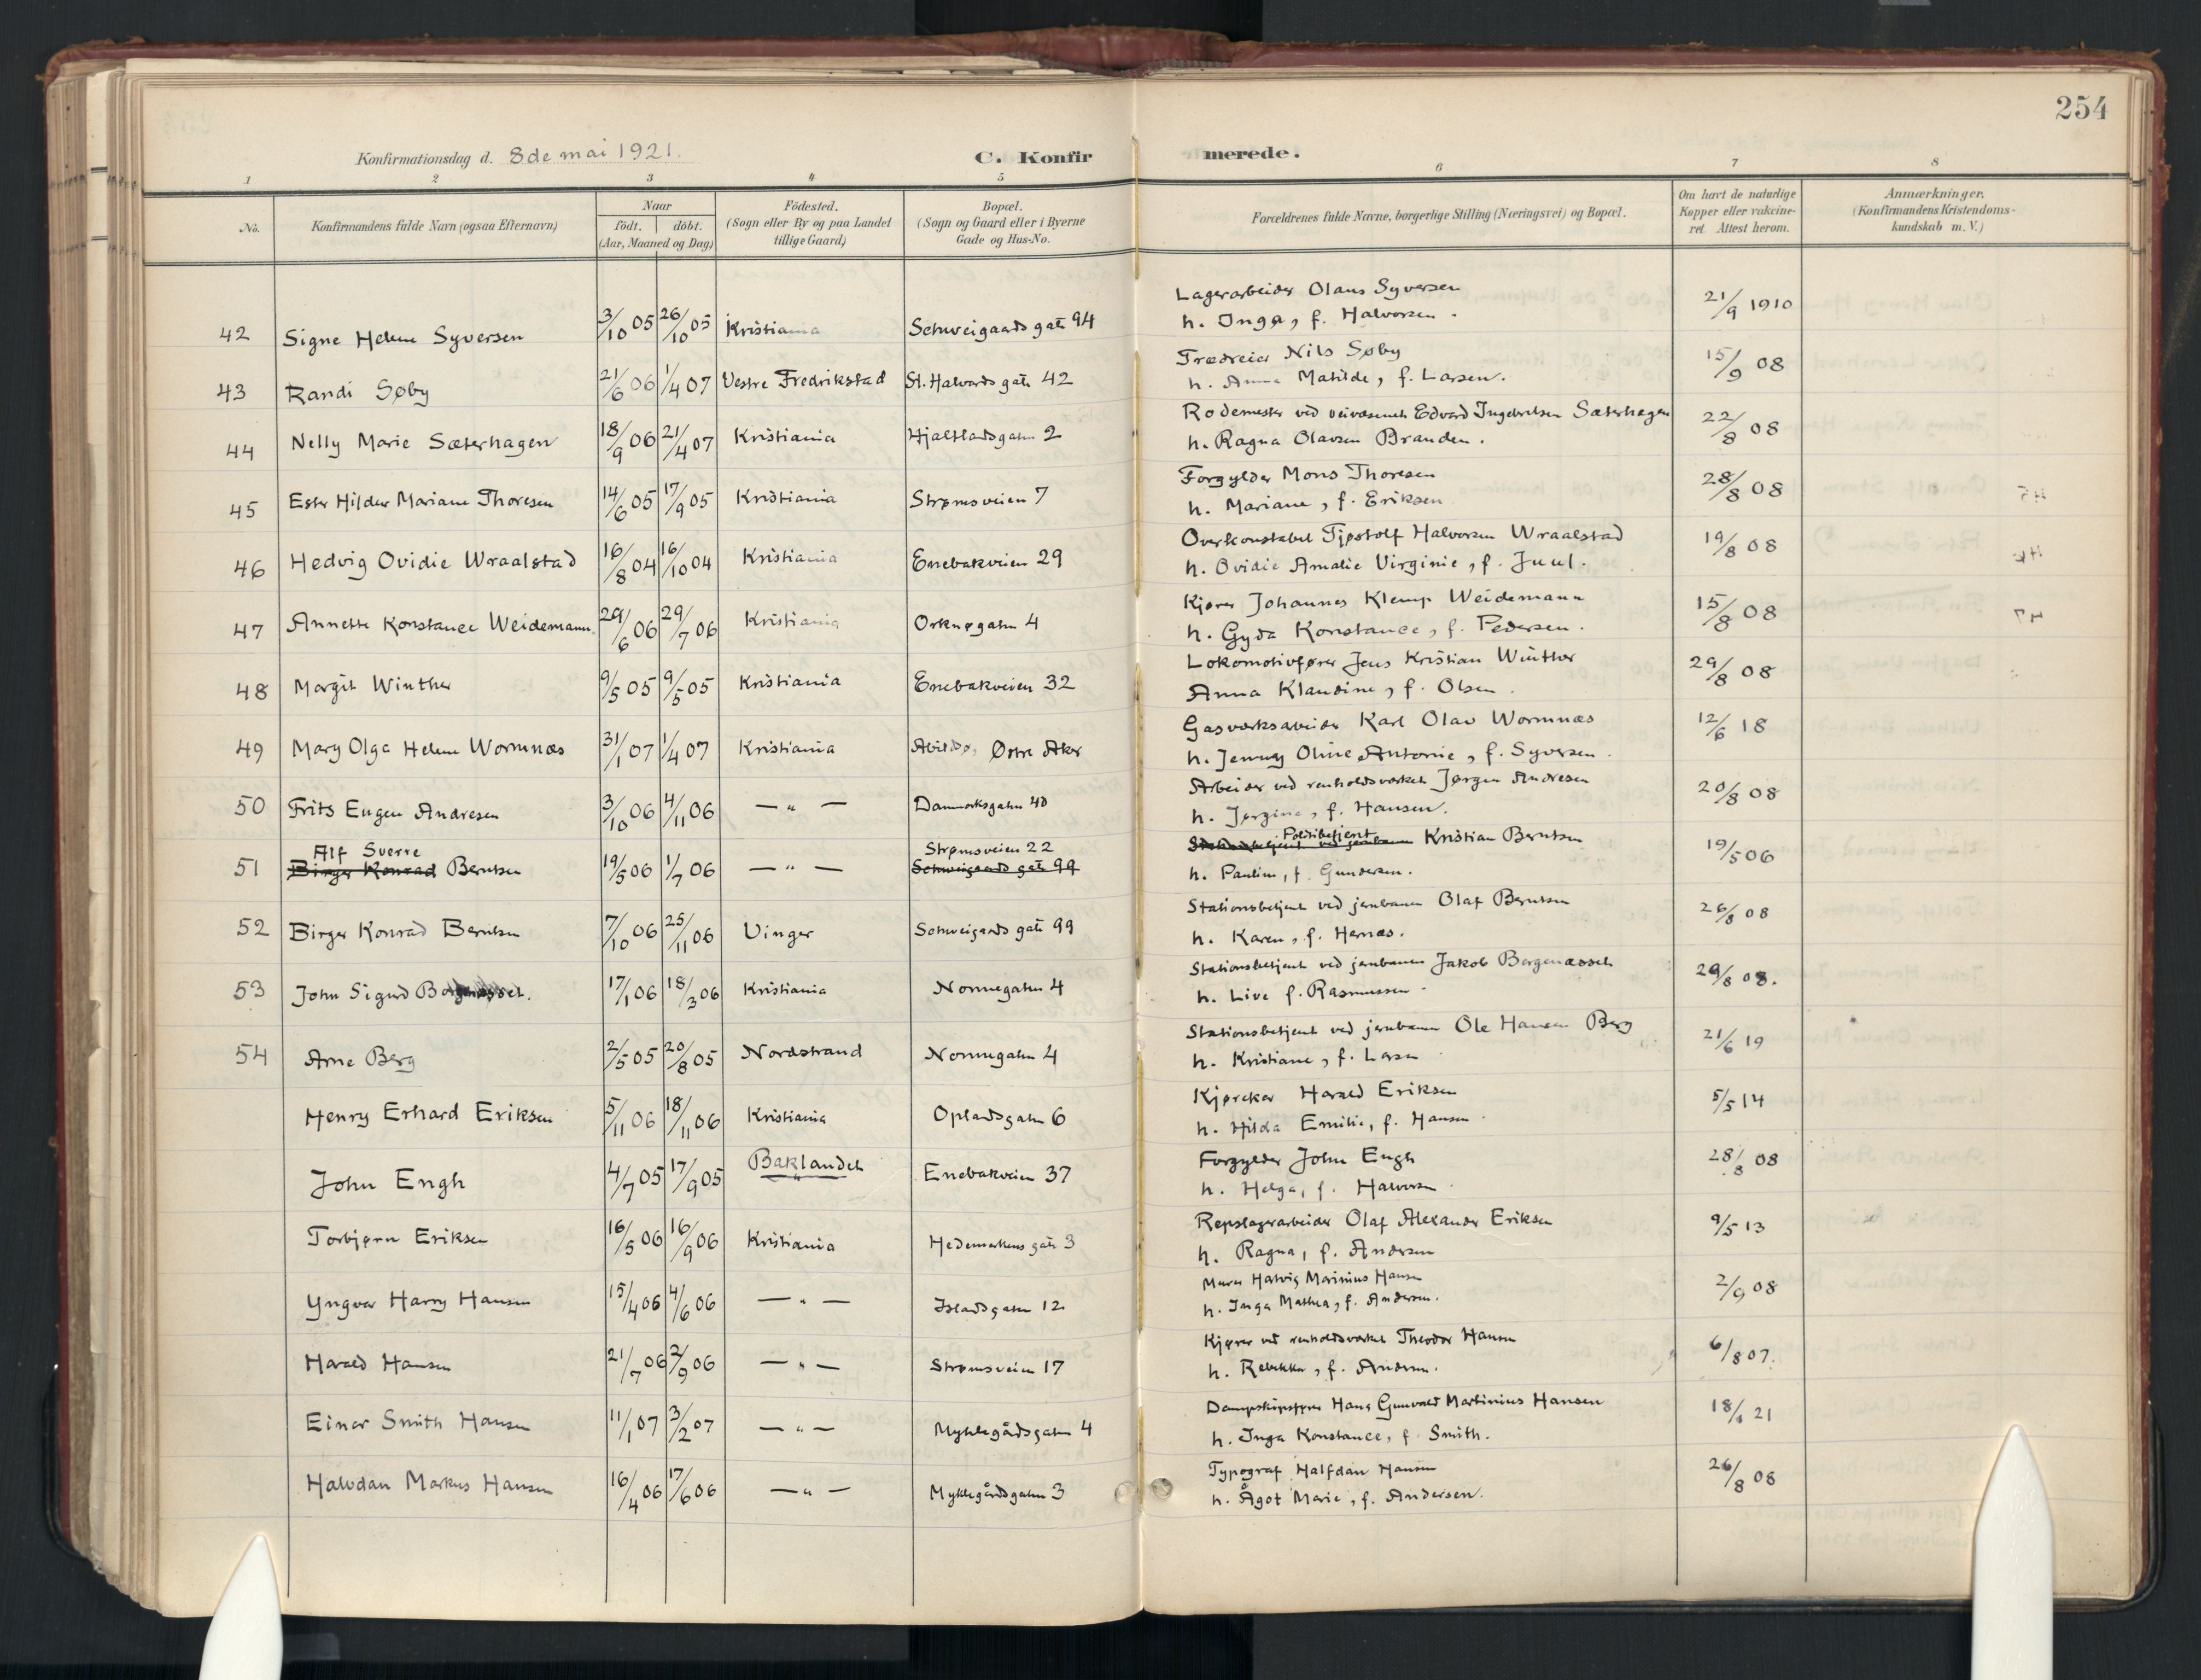 254
Konfirmationsdag d. 8de mai 1921. C. Konfir merede.
1 2 3 4 5 6 7 8
No. Konfirmandens fulde Navn (ogsaa Efternavn) Naar födt. döbt. (Aar, Maaned og Dag) Födested. (Sogn eller By og paa Landet tillige Gaard) Bopæl. (Sogn og Gaard eller i Byerne Gade og Hus-No. Forældrenes fulde Navne, borgerlige Stilling (Næringsvei) og Bopæl. Om havt de naturlige Kopper eller vakcineret. Attest herom. Anmærkninger. (Konfirmandens Kristendomskundskab m. V.)
42 Signe Helene Syversen 3/10 05 26/10 05 Kristiania Schweigaards gate 94 Lagerarbeider Olaus Syversen 21/9 1910
h. Inga, f. Halvorsen.
43 Randi Søby 21/6 06 1/4 07 Vestre Fredrikstad St. Halvards gate 42 Trædreier Nils Søby 15/9 08
h. Anna Matilde, f. Larsen.
44 Nelly Marie Sæterhagen 18/9 06 21/4 07 Kristiania Hjaltlandsgaten 2 Rodemester ved veivæsenet Edvard Ingebretsen Sæterhagen 22/8 08
h. Ragna Olavsen Branden.
45 Ester Hildur Mariane Thoresen 14/6 05 17/9 05 Kristiania Strømsveien 7 Forgylder Mons Thoresen 28/8 08
h. Mariane, f. Eriksen
46 Hedvig Ovidie Wraalstad 16/8 04 16/10 04 Kristiania Enebakveien 29 Overkonstabel Tjøstolf Halvorsen Wraalstad 19/8 08
h. Ovidie Amalie Virginie, f. Juul.
47 Annette Konstance Weidemann. 29/6 06 29/7 06 Kristiania Orknøgaten 4 Kjører Johannes Klemp Weidemann 15/8 08
h. Gyda Konstance, f. Pedersen.
48 Margit Winther 9/5 05 9/5 05 Kristiania Enebakveien 32 Lokomotivfører Jens Kristian Winther 29/8 08
Anna Klaudine, f. Olsen.
49 Mary Olga Helene Wormnæs 31/1 07 1/4 07 Kristiania Abildsø, Østre Aker Gasværksarbeider Karl Olav Wormnæs 12/6 18
h. Jenny Oline Antonie, f. Syversen.
50 Frits Eugen Andresen 3/10 06 4/11 06 — " — Danmarksgaten 40 Arbeider ved renholdsverket Jørgen Andresen 20/8 08
h. Jørgine, f. Hansen.
Alf Sverre Strømsveien 22 Politibetjent
51 Birger Konrad Berntsen 19/5 06 1/7 06 — " — Schweigaards gate 99 Kristian Berntsen 19/5 06
h. Pauline, f. Gundersen.
52 Birger Konrad Berntsen 7/10 06 25/11 06 Vinger Schweigards gate 99 Stationsbetjent ved jernbanen Olaf Berntsen 26/8 08
h. Karen, f. Hernæs.
53 John Sigurd Borgenæsset. 17/1 06 18/3 06 Kristiania Nonnegaten 4 Stationsbetjent ved jernbanen Jakob Borgenæsset 29/8 08.
h. Live f. Rasmussen
54 Arne Berg 2/5 05 20/8 05 Nordstrand Nonnegaten 4 Stationsbetjent ved jernbanen Ole Hansen Berg 21/6 19
h. Kristiane, f. Larsen
Henry Erhard Eriksen 5/11 06 18/11 06 Kristiania Oplandsgaten 6 Harald Eriksen 5/5 14
h. Hilda Emilie, f. Hansen
John Engh 4/7 05 17/9 05 Baklandet Enebakveien 37 Forgylder John Engh 28/8 08
h. Helga, f. Halvorsen
Torbjørn Eriksen 16/5 06 16/9 06 Kristiania Hedemarkens gate 3 Repslagerarbeider Olaf Alexander Eriksen 9/5 13
h. Ragna, f. Andersen
Yngvar Harry Hansen 15/4 06 4/6 06 — " — Islandsgaten 12 Murer Halvig Marinius Hansen 2/9 08
h. Inga Mathea, f. Andersen.
Harald Hansen 21/7 06 2/9 06 — " — Strømsveien 17 Kjører ved renholdsverket Theodor Hansen 6/8 07.
h. Rebekka, f. Andersen.
Einar Smith Hansen 11/1 07 3/2 07 — " — Myklegårdsgaten 4 Dampskipsfører Hans Gunvald Martinius Hansen 18/1 21
h. Inga Konstance, f. Smith.
Halvdan Markus Hansen 16/4 06 17/6 06 — " — Myklegårdsgaten 3 Typograf Halfdan Hansen 26/8 08
h. Ågot Marie, f. Andersen.